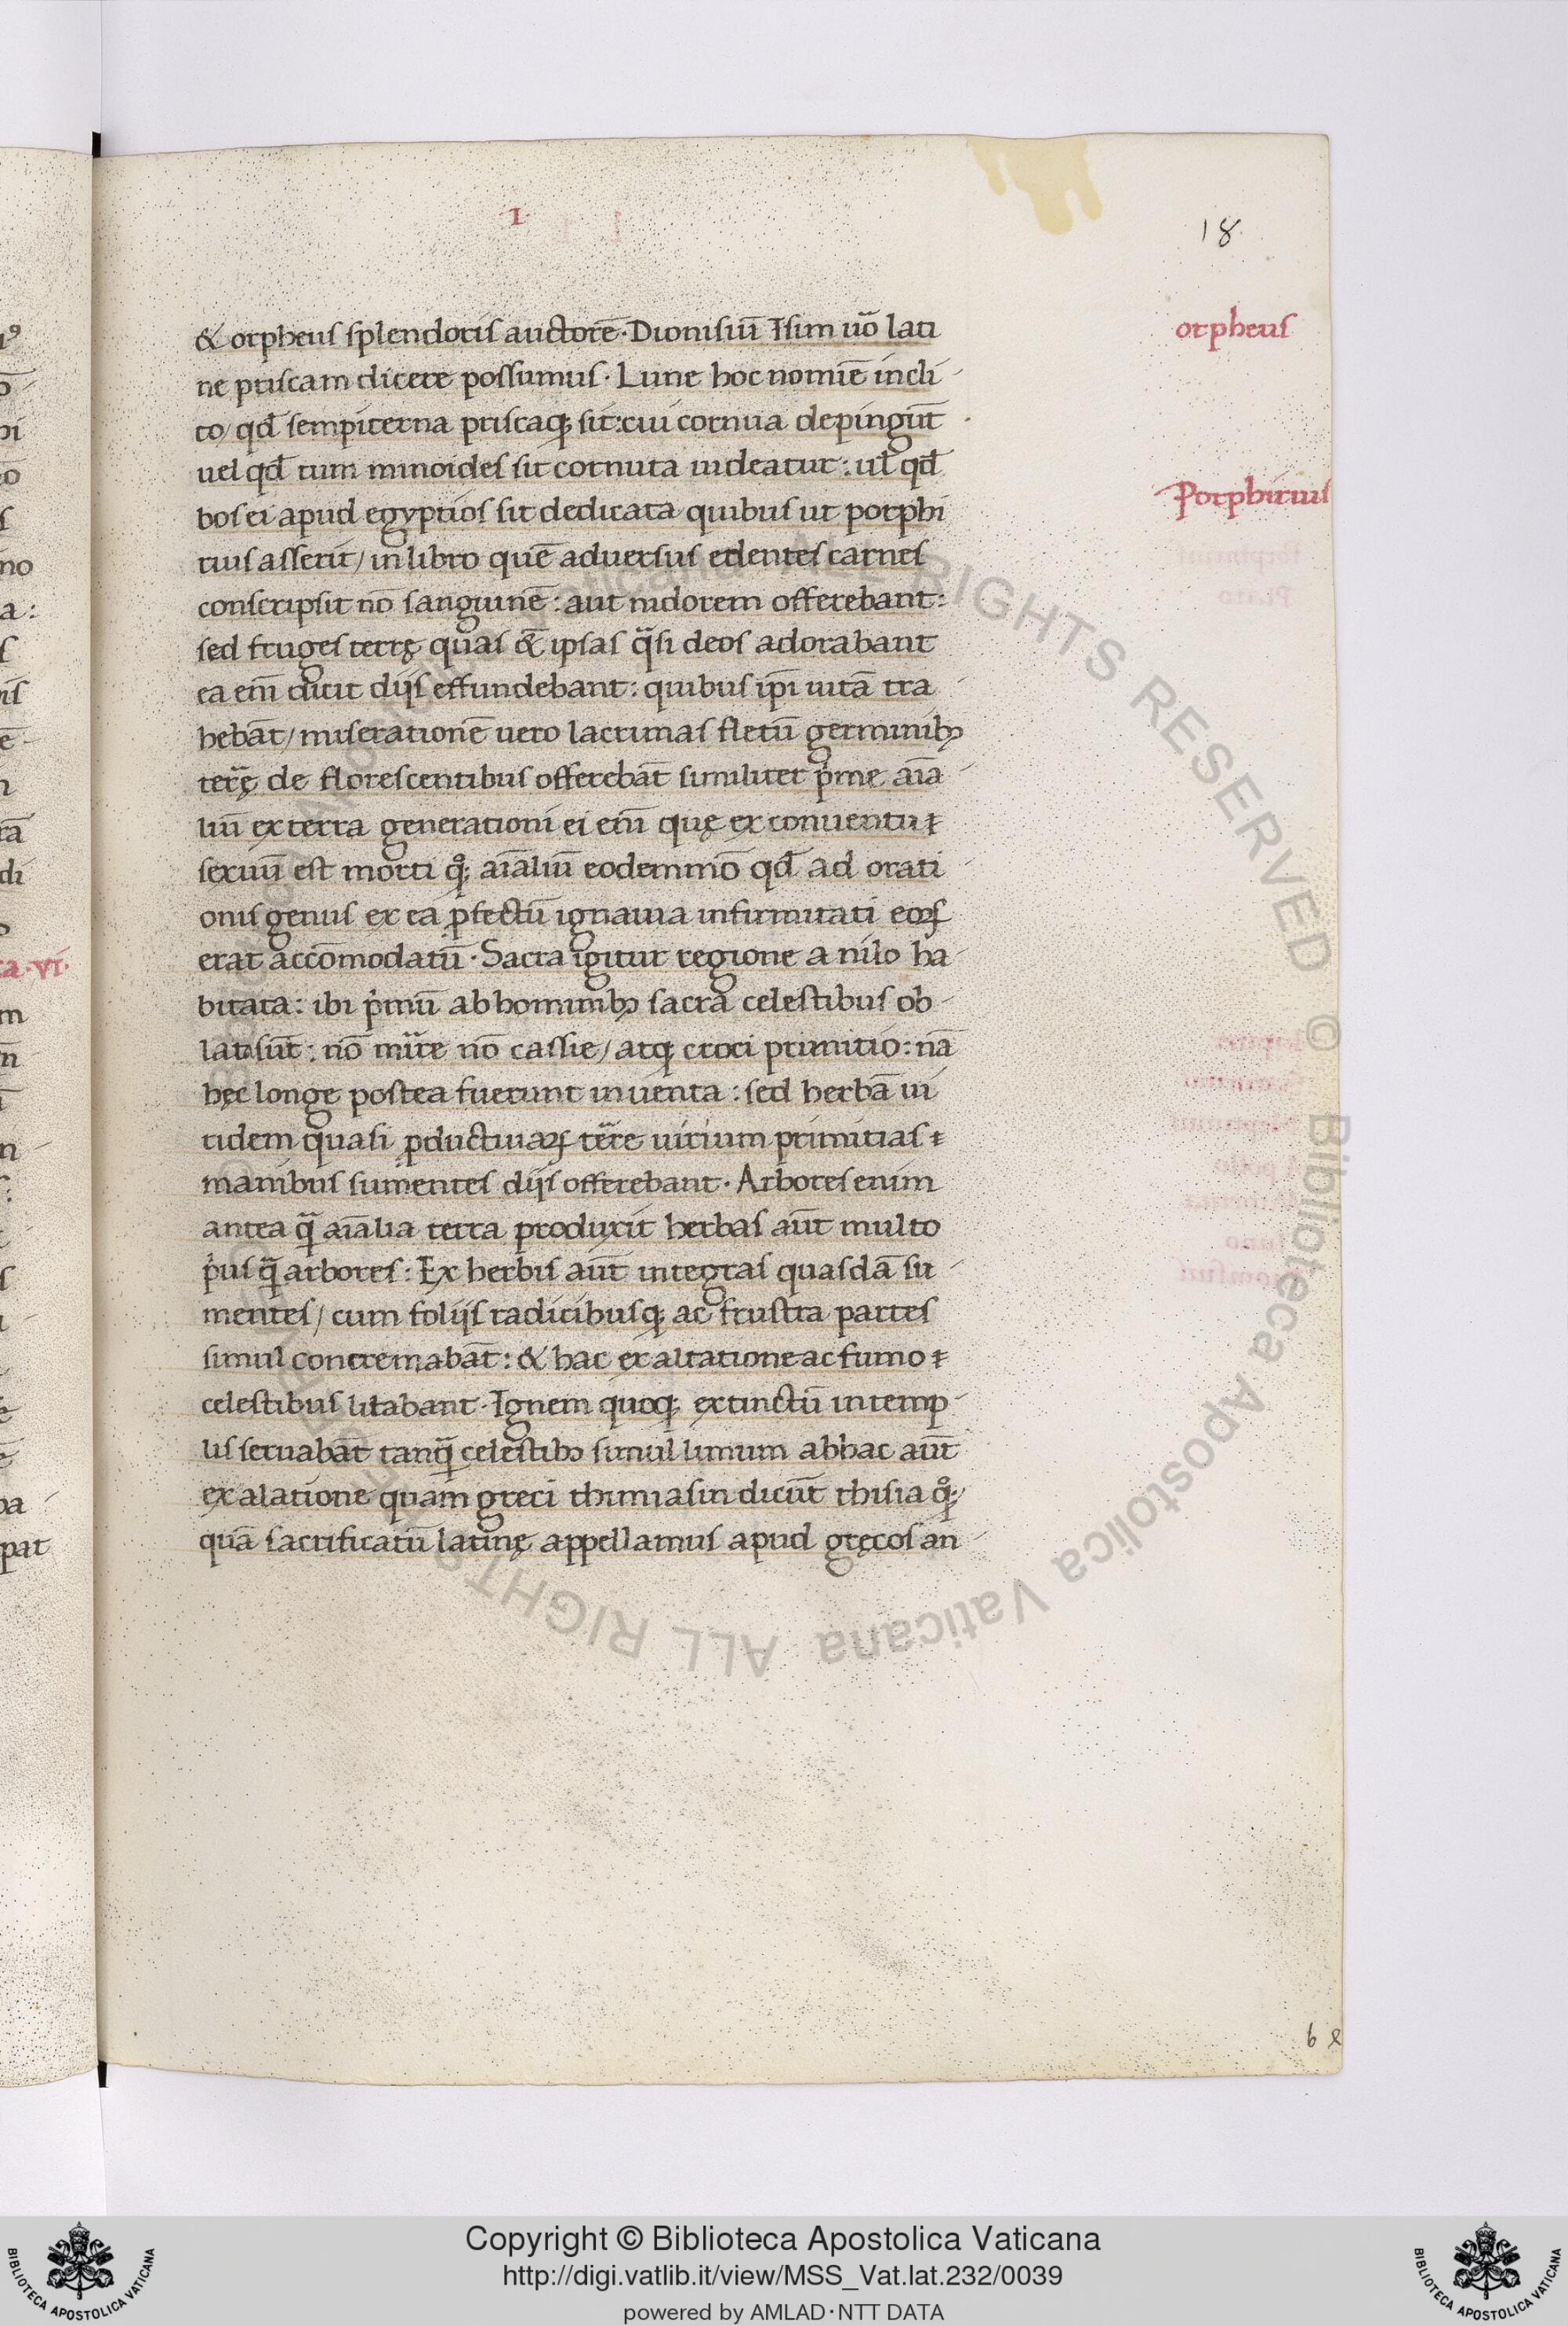 I
18
& orpheus splendoris auctorē·Dionisiū Isim uō lati
ne priscam dicere possumus· Lune hoc nomiē incli
to/ qđ sempiterna priscaq; sit: cui cornua depingūt
uel qđ tum minoides sit cornuta uideatur: uł qđ
bos ei apud egyptios sit dedicata quibus ut porphi
rius asserit/ in libro quē aduersus edentes carnes
conscripsit nō sanguinē: aut nidorem offerebant:
sed fruges terrę quas & ipsas q̄si deos adorabant
ea em̄ dicit dijs effundebant: quibus ip̄i uitā tra
hebāt/ miserationē uero lacrimas fletū germinibꝫ
terr̄ę de florescentibus offerebāt similiter p̍me aīa
liū ex terra generationi ei em̄ quę ex conuentu
sexuū est morti qͦ; aīaliū eodem mō qđ ad orati
onis genus ex ea ꝓfectū ignauia infirmitati eoꝝ
erat accōmodatū· Sacra igitur regione a nilo ha
bitata: ibi p̍mū ab hominibꝫ sacra celestibus ob
lata sūt: nō mirr̄e nō cassie/ atq; croci primitio: nā
hęc longe postea fuerunt inuenta: sed herbā ui
ridem quasi ꝓductiuaꝝ terr̄e uirium primitias
manibus sumentes dijs offerebant· Arbores enim
antea q̄ aīalia terra produxit herbas aūt multo
p̍us q̄ arbores: Ex herbis aūt integras quasdā su
mentes/ cum folijs radicibusq; ac frustra partes
simul concremabāt: & hac exaltatione ac fumo
celestibus litabant· Ignem quoq; extinctū in temp
lis seruabāt tanq̄ celestibꝫ simillimum ab hac aūt
exalatione quam greci thimiasin dicūt thisia qͦ;
quā sacrificatū latinę appellamus apud gręcos an
orpheus
Porphirius
b
Copyright © Biblioteca Apostolica Vaticana
http://digi.vatlib.it/view/MSS_Vat.lat.232/0039
powered by AMLAD·NTT DATA
BIBLIOTECA APOSTOLICA VATICANA
BIBLIOTECA APOSTOLICA VATICANA